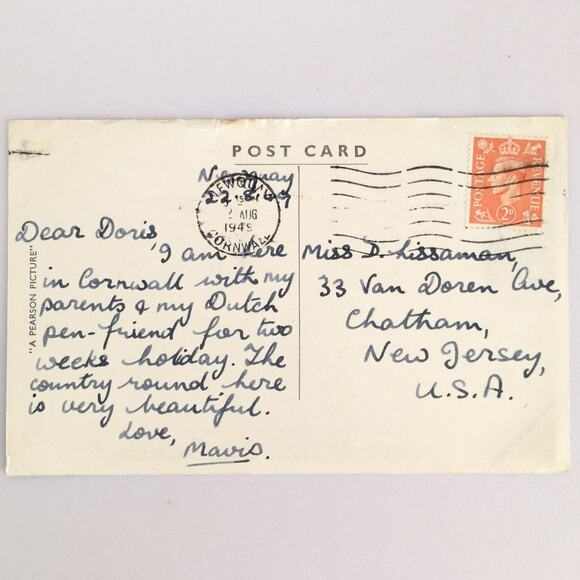 POST CARD
Newquay
22.8.49
NEWQUAY
AUG
1949
CORNWALL
POSTAGE REVENUE
2D
Dear Doris
I am here
in Cornwall with my
parents & my Dutch
pen-friend for two
weeks holiday. The
country round here
is very beautiful.
Love,
Mavis.
Miss D. Lissaman,
33 Van Doren Ave,
Chatham,
New Jersey,
U.S.A.
"A PEARSON PICTURE"